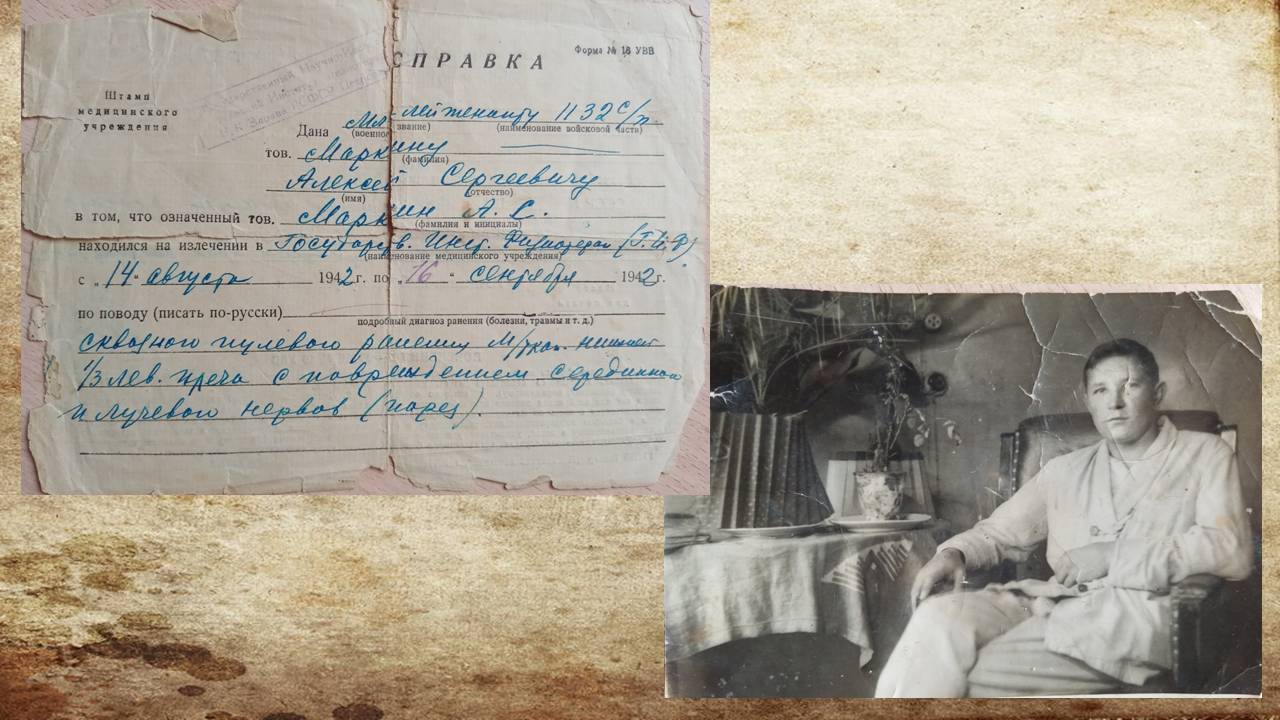 Форма № 16 УВВ
СПРАВКА
Штамп
медицинского
учреждения
Дана Мл. лейтенанту 1132 с/п.
(военное звание) (наименование войсковой части)
тов. Маркину
(фамилия)
Алексей Сергеевичу
(имя) (отчество)
в том, что означенный тов. Маркин А. С.
(фамилия и инициалы)
находился на излечении в Государств. Инст. Физиотерап (Г.И.Ф)
(наименование медицинского учреждения)
с „14" августа 1942 г. по „16" сентября 1942 г.
по поводу (писать по-русски)
подробный диагноз ранения (болезни, травмы и т. д.)
сквозного пулевого ранения м/ткан. нижней
1/3 лев. плеча с повреждением серединного
и лучевого нервов (парез).